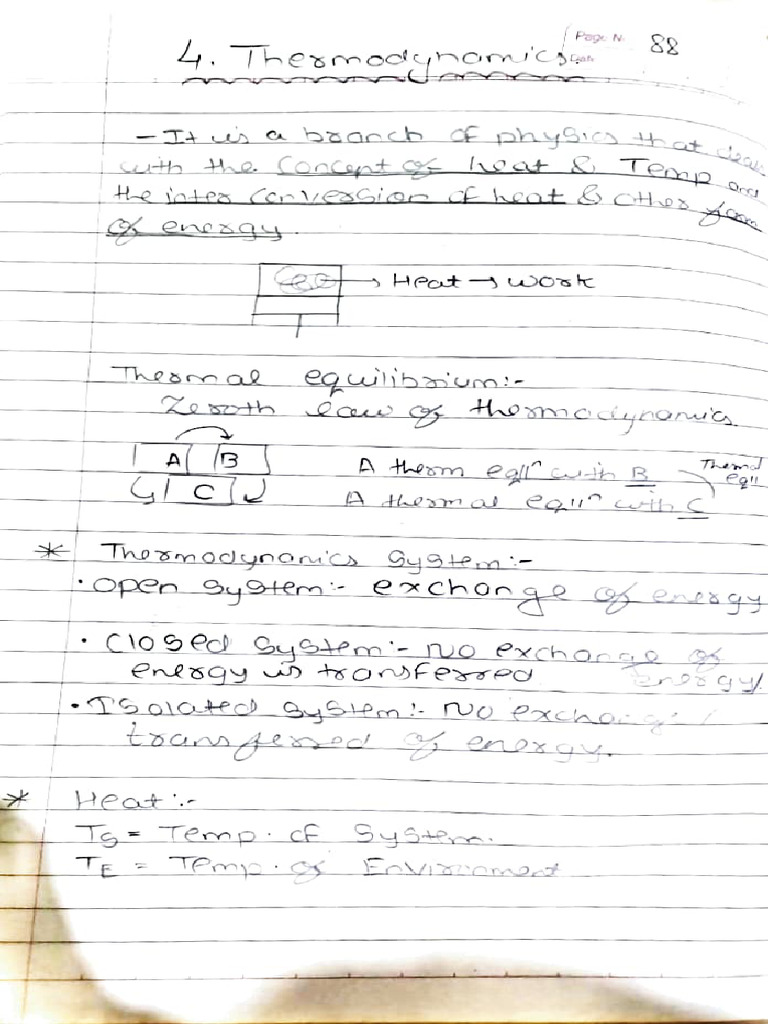 Page No. 88
4. Thermodynamics
Date
- It is a branch of physics that deals
with the concept of heat & Temp and
the inter conversion of heat & other form
of energy.
→ Heat → work
Thermal equilibrium:-
Zeroth law of thermodynamics
A B
C
A therm eqllⁿ with B
A thermal eqllⁿ with C
Thermal
eqll
* Thermodynamics system:-
• open system:- exchange of energy
• Closed system:- No exchange of
energy is transferred energy
• Isolated system:- No exchange /
transferred of energy.
* Heat:-
TS = Temp. of System.
TE = Temp. of Enviroment